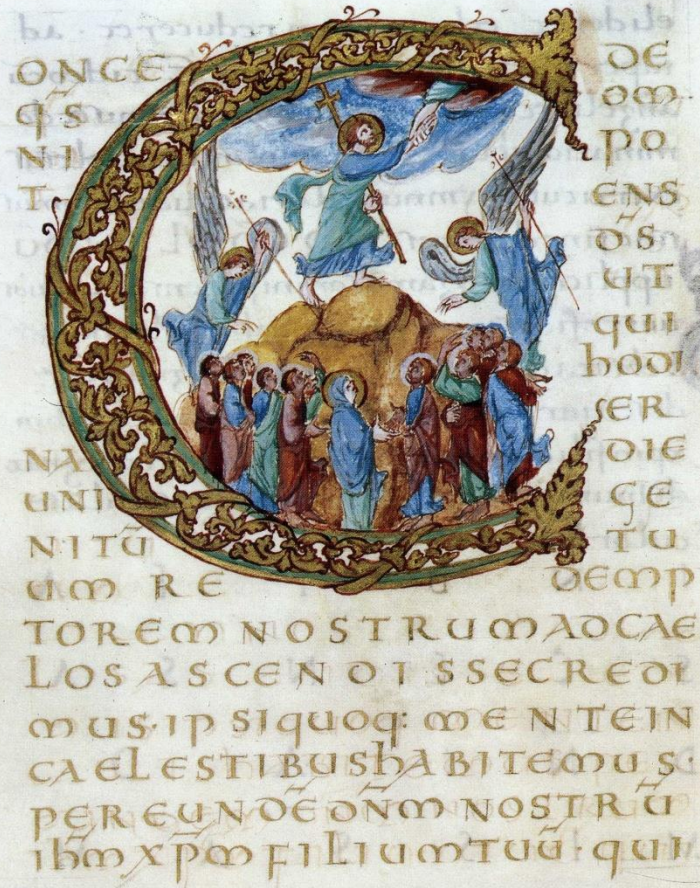 CONCE DE
q̄s om
NI PO
T ENS
D̄S
UT
qui
hodi
ER
NA DIE
UNI GE
NITŪ TU
um RE DEMP
TOREM NOSTRUM AD CAE
LOS ASCENDISSE CREDI
mus· ipsi quoq: mente in
CAELESTIBUS hABITEMUS·
PER EUNDĒ DN̄M NOSTRŪ
ih̄m xp̄m FILIUM TUŪ· qui